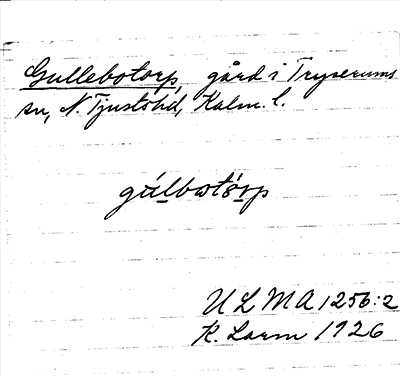 Gullebotorp, gård i Tryserums
sn, N. Tjusts hd, Kalm. l.
gúlbωtö́rp
ULMA 1256:2
R. Larm 1926